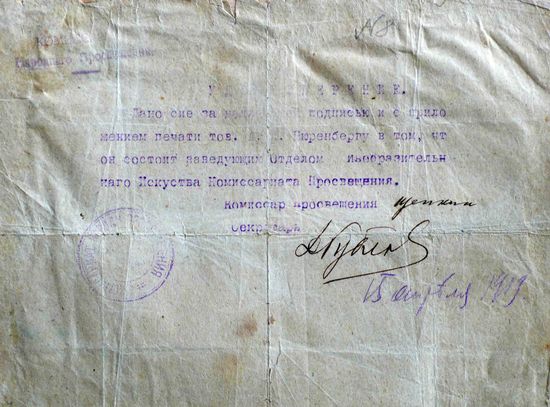 №8
Народнаго Просвещения
У Д ЕРЕНИЕ.
Дано сие за подписью и с прило
жением печати тов. Нюренбергу в том, чт
он состоит заведующим Отделом изобразительн
наго Искуства Комиссариата Просвещения.
Комиссар Просвещения Щепкин
Секретарь
15 апреля 1919.